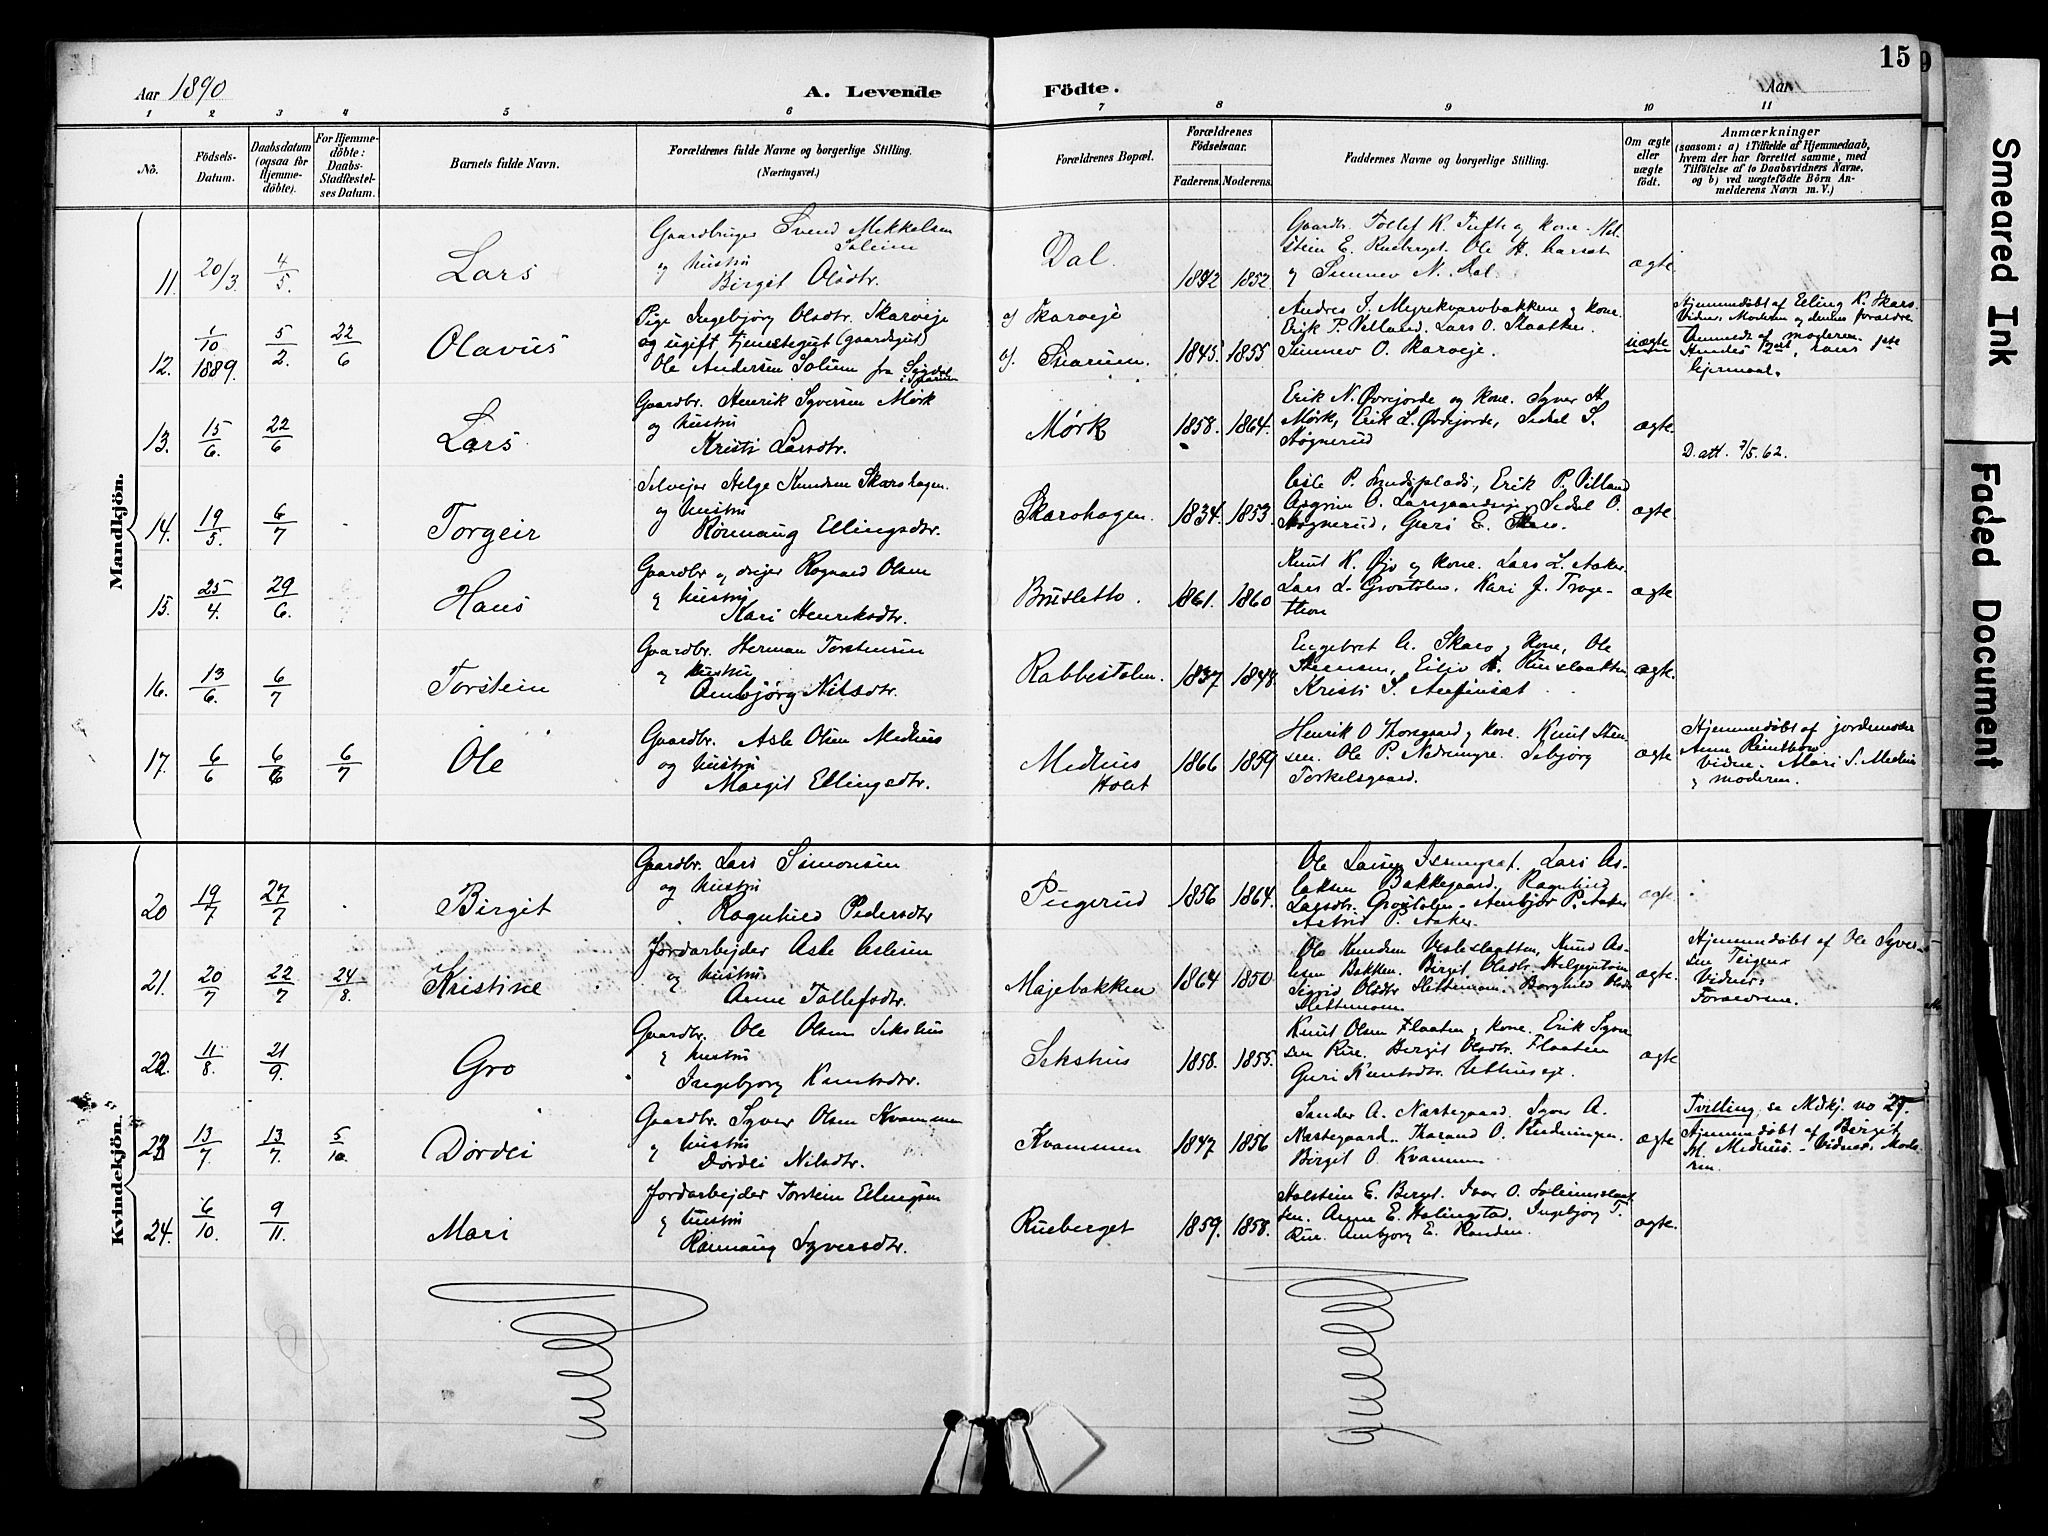 15
Aar 1890
A. Levende Födte.
Aar
1 2 3 4 5 6 7 8 9 10 11
No.
Födsels-Datum.
Daabsdatum (ogsaa för Hjemme-döbte).
For Hjemme-döbte: Daabs-Stadfæstel-ses Datum.
Barnets fulde Navn.
Forældrenes fulde Navne og borgerlige Stilling. (Næringsvei.)
Forældrenes Bopæl.
Forældrenes Födselsaar.
Faderens. Moderens.
Faddernes Navne og borgerlige Stilling.
Om ægte eller uægte födt.
Anmærkninger
(saasom: a) i Tilfælde af Hjemmedaab, hvem der har forrettet samme, med Tilföielse af to Daabsvidners Navne, og b) ved uægtefödte Börn An-melderens Navn m. V.)
Mandkjön.
11. 20/3. 4/5. Lars
Gaardbruger Svend Mekkelsen
og hustru
Birgit Olsdtr.
Dal. 1842 1852
ægte.
12. 1/10 1889. 5/2. 22/6 Olavus
Pige Ingebjørg Olsdtr. Skarveje
og ugift tjenestegut (gaardsgut)
Ole Andersen Solium fra Sigdal
af Skarveje
1845. 1855
Andres S. Myrekvarvbakken og kone.
Erik P. Villand. Lars O. Slaatten
Sünnev O. Skarveje.
uægte
Hjemmedøbt af Elling K. Skars.
Anmeldt af moderen.
13. 15/6. 22/6 Lars
Gaardbr. Henrik Syversen Mørk
og hustru
Kristi Larsdtr.
Mørk 1858. 1864.
Erik N. Øvrejorde og kone. Syver H.
Mørk, Erik L. Øvrejorde, Sidsel S.
Høgnerud
ægte.
D.att. 7/5.62.
14. 19/5. 6/7 Torgeir
Selvejer Helge Knudsen Skarshagen.
og hustru
Rønnaug Ellingsdtr.
Skarshagen. 1834. 1853.
Erik P. Villand
Sidsel O.
Høgnerud, Guri E. Skars.
ægte
15. 25/4. 29/6. Hans
Gaardbr og drejer Ragnvald Olsen
og hustru
Kari Henriksdtr.
Brusletto. 1861. 1860
Knut K. Øjo og kone. Lars L. Aaker.
Lars L. Grostølen. Kari J. Trøge-
thon
ægte
16. 13/6. 6/7 Torstein
Gaardbr. Herman Torstensen
og hustru
Ambjørg Nilsdtr.
Rabbestølen. 1837 1848.
Engebret A. Skaro og kone, Ole
Kristi S. Aufinset
ægte.
17. 6/6 6/6 6/7 Ole
Gaardbr. Asle Olsen Medhus
og hustru
Margit Ellingsdtr.
Medhus
Holet
1866 1859
Henrik O Thorsgaard og kone. Knut Sten-
sen. Ole P. Nedremyre. Sebjørg
Torkelsgaard.
ægte
Hjemmedøbt af jordemoder
Vidne. Mari S. Medhus
og moderen.
Kvindekjön.
20 19/7 27/7 Birgit
Gaardbr. Lars Simonsen
og hustru
Ragnhild Pedersdtr
Pugerud 1856 1864.
Ole Larsen. Lars As-
laksen Bakkegaard, Ragnhild
Larsdtr. Grostølen. Ambjør P. Aaker
Astrid P. Aaker.
ægte
21. 20/7 22/7 24/8. Kristine
Jordarbejder Asle Aslesen
og hustru
Anne Tollefsdtr.
Majebakken 1864 1850
Ole Knudsen Vesleslaatten, Knud As-
lesen Bakken. Birgit Olsdtr.
Sigrid Olsdtr Slettemoen. Borghild Olsdtr
Slettemoen
ægte.
Hjemmedøbt af Ole Syver-
sen Teigen
Vidner:
Forældrene.
22. 11/8. 21/9. Gro
Gaardbr. Ole Olsen Sekshus
og hustru
Ingebjørg Knutsdtr.
Sekshus 1858. 1855.
Knut Olsen Flaaten og kone. Erik Syver-
sen Rue. Bergit Olsdtr. Flaaten
Guri Knutsdtr.
ægte
23 13/7 13/7. 5/10. Dordei
Gaardbr. Syver Olsen Kvammen
og hustru
Dordei Nilsdtr.
Kvammen 1847 1856
Sander A. Næstegaard. Syver A.
Næstegaard. Tharand O.
Birgit O. Kvammen
ægte
Tvilling, se Mdkj. no 27.
Hjemmedøbt af Birgit
M. Medhus. - Vidner, Mode-
ren.
24. 6/10. 9/11. Mari
Jordarbejder Torstein Ellingsen
og hustru
Rønnaug Syversdtr.
Rueberget 1859. 1858.
Holstein E. Berget. Ivar O.
Anne E. Halingstad, Ingebjørg T.
Rue. Ambjørg E. Randen.
ægte.
Smeared Ink
Faded Document